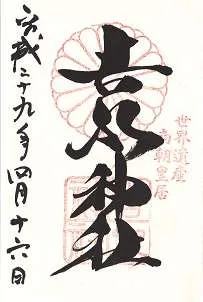 世界遺産
南朝皇居
吉水神社
平成二十九年四月十六日